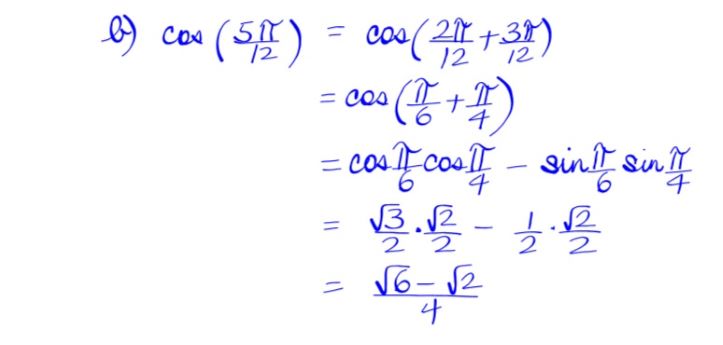 b) cos(5π/12) = cos(2π/12 + 3π/12)
= cos(π/6 + π/4)
= cos π/6 cos π/4 - sin π/6 sin π/4
= √3/2 · √2/2 - 1/2 · √2/2
= (√6 - √2)/4